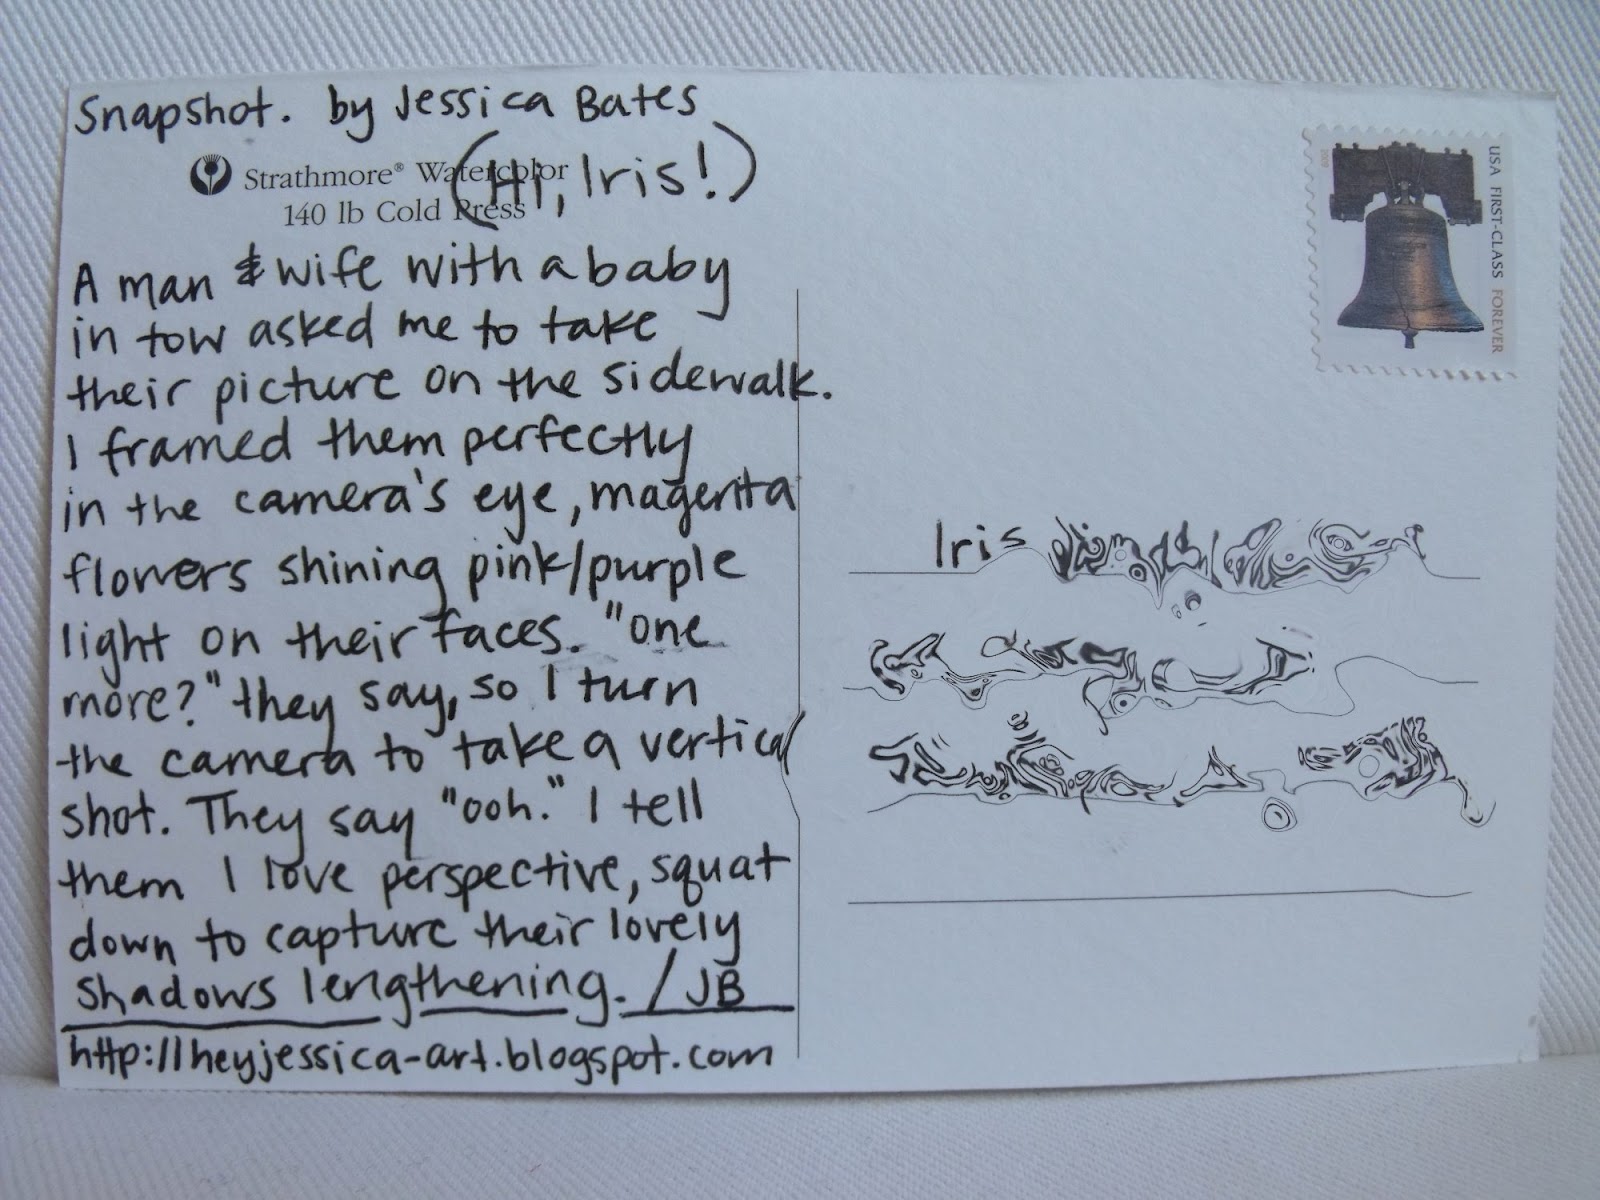 Snapshot. by Jessica Bates
(Hi, Iris!)
Strathmore® Watercolor
140 lb Cold Press
A man & wife with a baby
in tow asked me to take
their picture on the sidewalk.
I framed them perfectly
in the camera's eye, magenta
flowers shining pink/purple
light on their faces. "one
more?" they say, so I turn
the camera to take a vertical
shot. They say "ooh." I tell
them I love perspective, squat
down to capture their lovely
shadows lengthening. / JB
http://heyjessica-art.blogspot.com
USA FIRST-CLASS FOREVER
2009
Iris